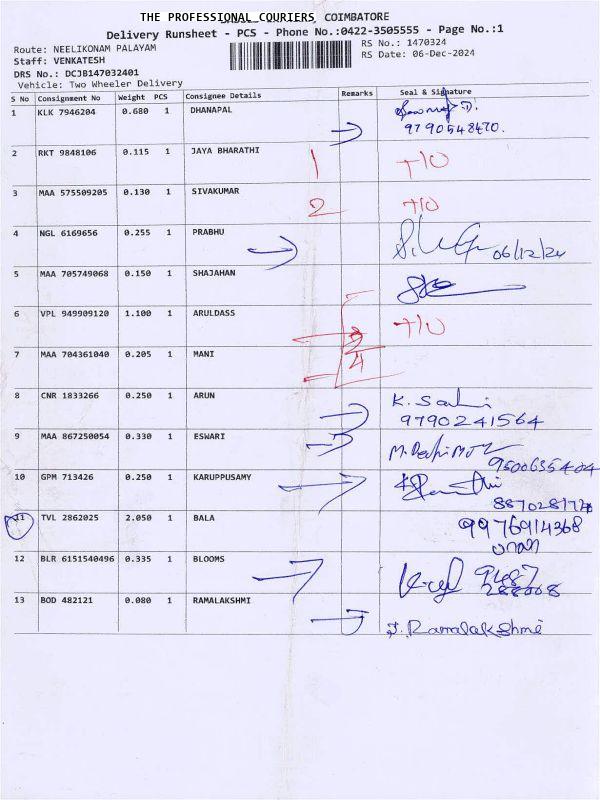 THE PROFESSIONAL COURIERS, COIMBATORE
Delivery Runsheet - PCS - Phone No.:0422-3505555 - Page No.:1
Route: NEELIKONAM PALAYAM
RS No.: 1470324
Staff: VENKATESH
RS Date: 06-Dec-2024
DRS No.: DCJB147032401
Vehicle: Two Wheeler Delivery
S No Consignment No Weight PCS Consignee Details Remarks Seal & Signature
1 KLK 7946204 0.680 1 DHANAPAL
9790548470.
2 RKT 9848106 0.115 1 JAYA BHARATHI 1 +10
3 MAA 575509205 0.130 1 SIVAKUMAR 2 +10
4 NGL 6169656 0.255 1 PRABHU 06/12/24
5 MAA 705749068 0.150 1 SHAJAHAN
6 VPL 949909120 1.100 1 ARULDASS 3 +10
7 MAA 704361040 0.205 1 MANI 4
8 CNR 1833266 0.250 1 ARUN K. Saki
9790241564
9 MAA 867250054 0.330 1 ESWARI
9500655404
10 GPM 713426 0.250 1 KARUPPUSAMY
11 TVL 2862025 2.050 1 BALA 9976914368
பாலா
12 BLR 6151540496 0.335 1 BLOOMS 9487
288008
13 BOD 482121 0.080 1 RAMALAKSHMI J. Ramalakshmi